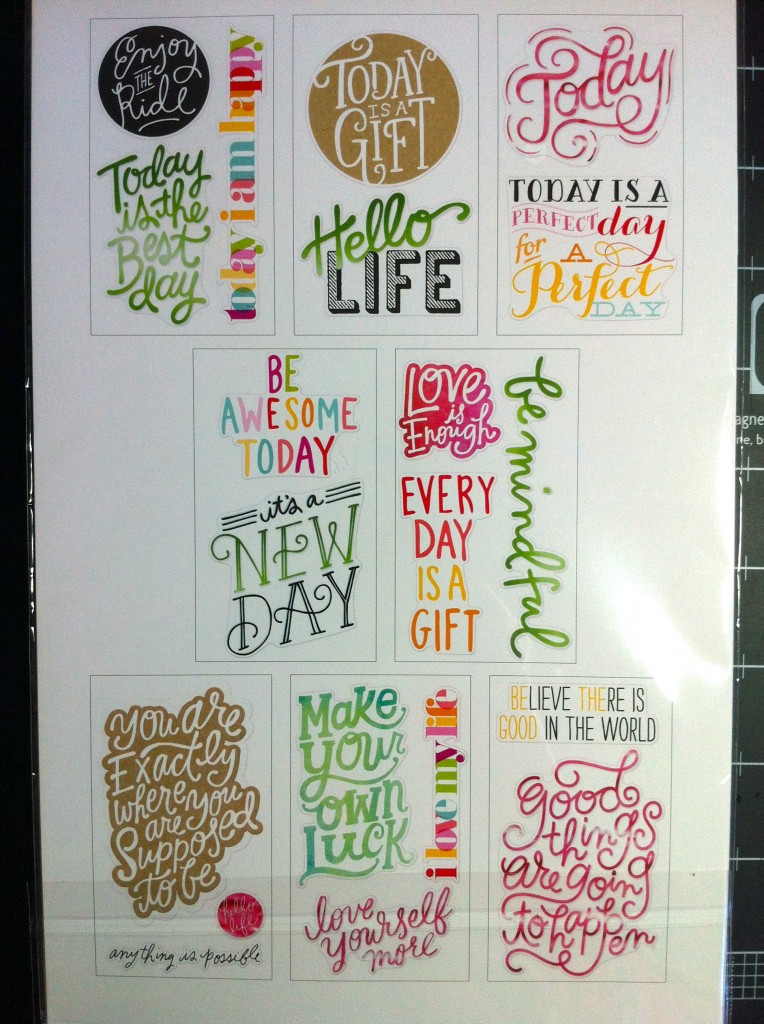 Enjoy
THE
Ride
today i am happy
Today
is the
Best
day
TODAY
IS A
GIFT
Hello
LIFE
Today
TODAY IS A
PERFECT day
for A
Perfect
DAY
BE
AWESOME
TODAY
it's a
NEW
DAY
Love
is
Enough
be mindful
EVERY
DAY
IS A
GIFT
you are
Exactly
where you
are
Supposed
to be
hello
life
anything is possible
Make
your
own
Luck
i love my life
love
yourself
more
BELIEVE THERE IS
GOOD IN THE WORLD
good
things
are going
to happen